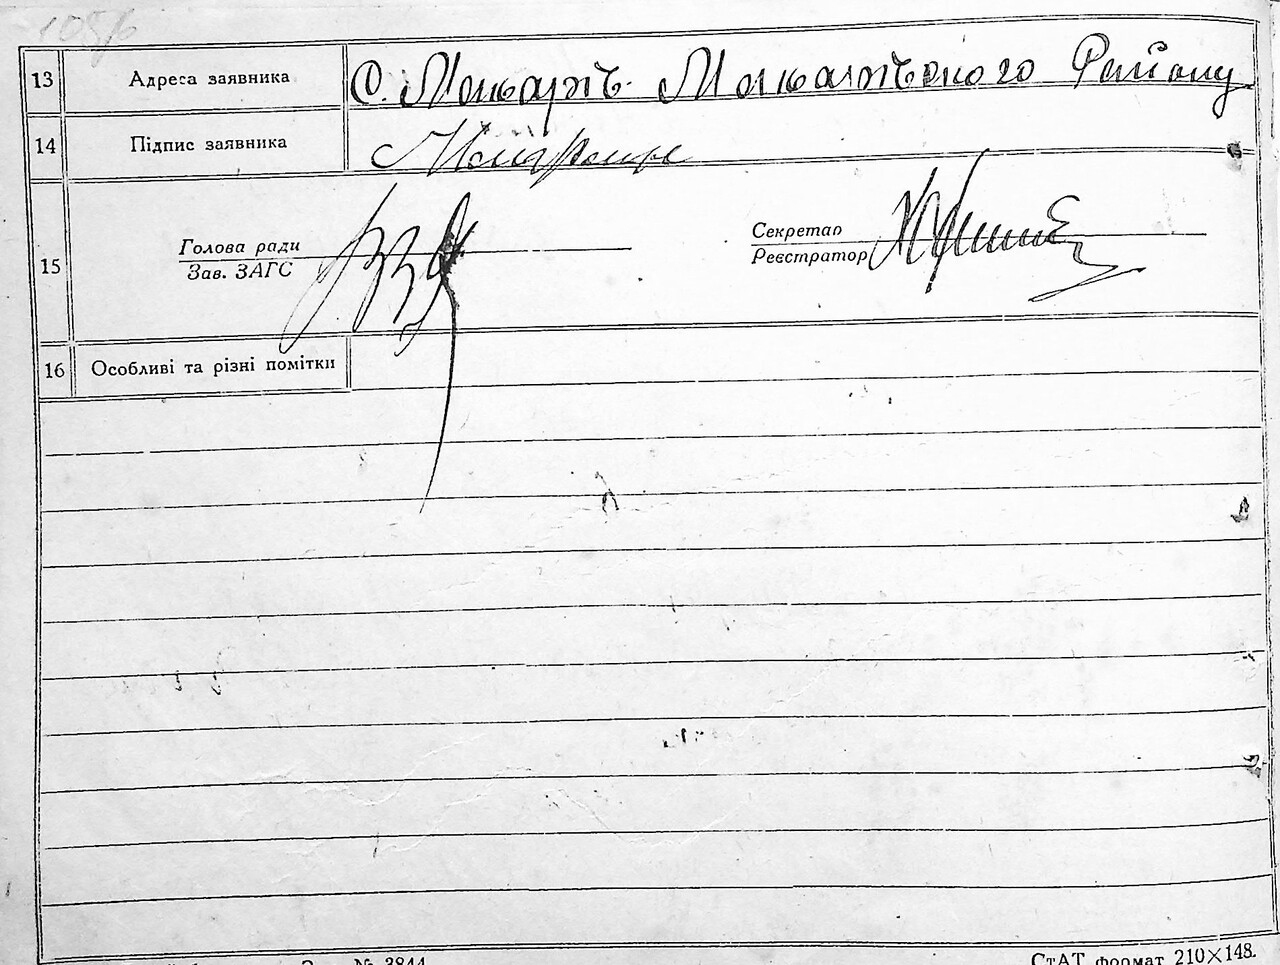 13 Адреса заявника С. Макарів Макарівського Району
14 Підпис заявника
15 Голова ради Секретар
Зав. ЗАГС Реєстратор
16 Особливі та різні помітки
№ 3844
СтАТ формат 210×148.